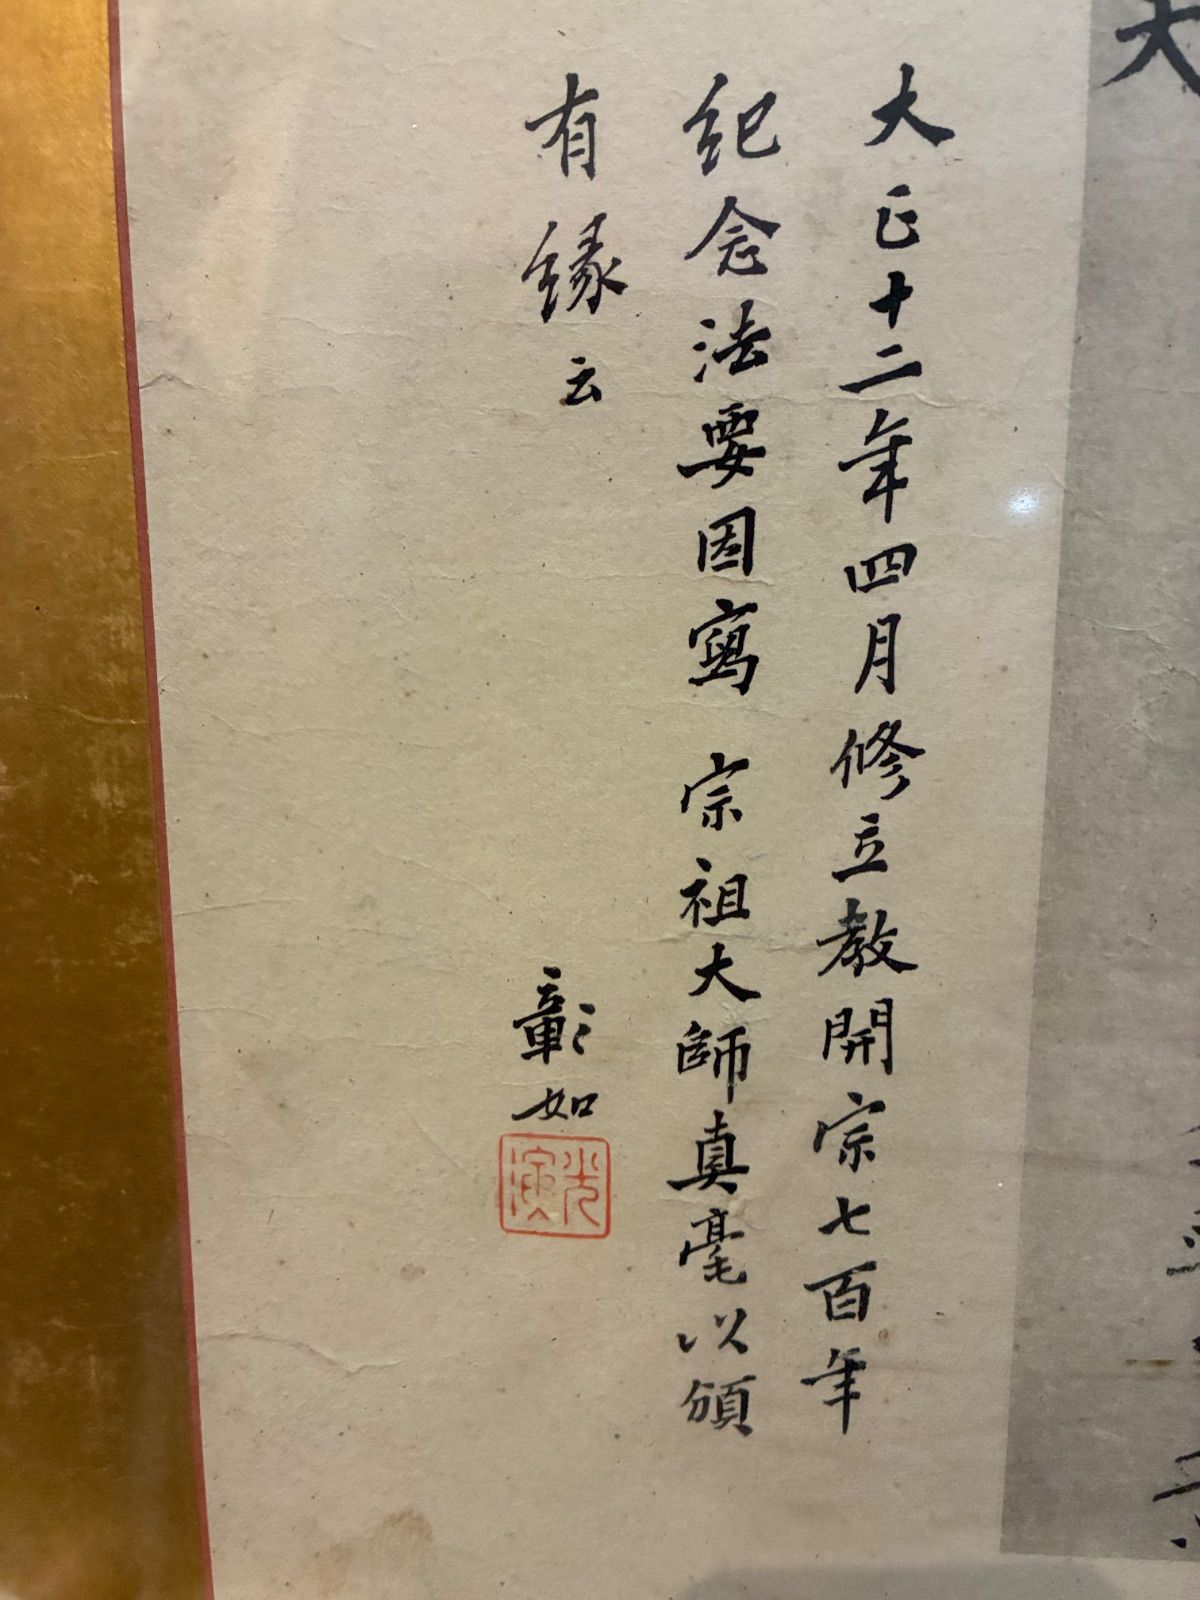 大正十二年四月修立教開宗七百年
紀念法要因寫　宗祖大師真毫以頒
有縁云
彰如
光演
大